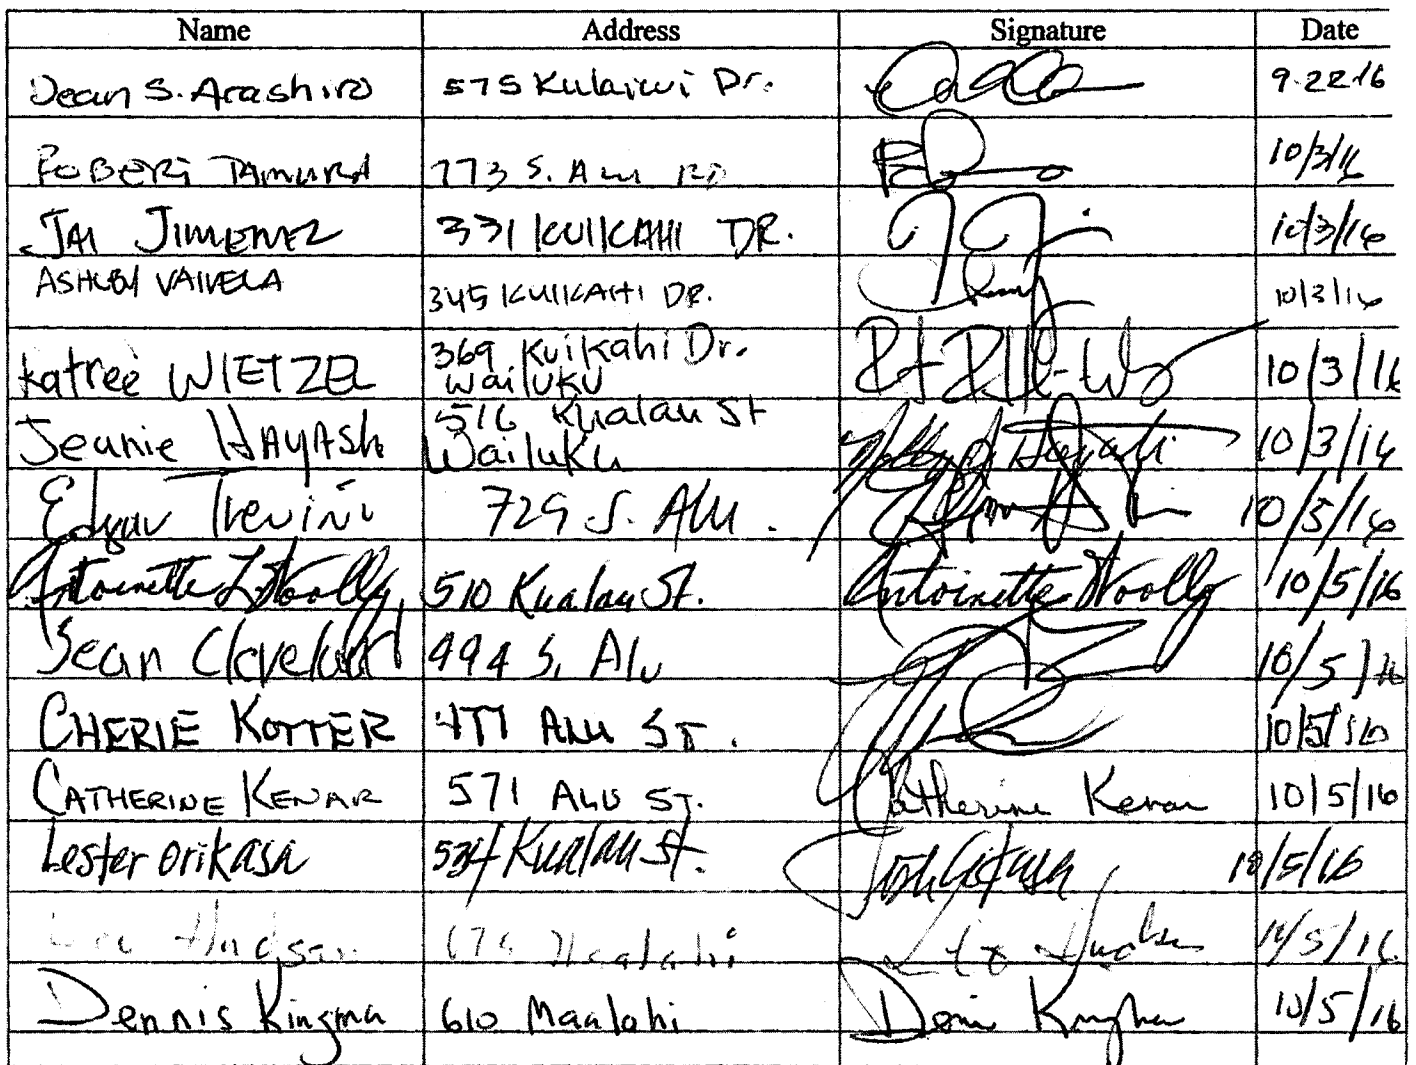 Name Address Signature Date
Dean S. Arashiro 575 Kulaiwi Dr. 9.22.16
ROBERT TAMURA 773 S. Alu RD 10/3/16
JAI JIMENEZ 331 KUIKAHI DR. 10/3/16
ASHLEY VAIVELA 345 KUIKAHI DR. 10/3/16
Katree WIETZEL 369 Kuikahi Dr. Wailuku 10/3/16
Jeanie HAYASHI 516 Kualau St Wailuku Hayashi 10/3/16
Edgar Trevino 729 S. Alu. 10/5/16
Antoinette L. Woolly 510 Kualau St. Antoinette Woolly 10/5/16
Sean Cleveland 494 S. Alu 10/5/16
CHERIE KOTTER 477 ALU ST. 10/5/16
CATHERINE KENAR 571 ALU ST. Catherine Kenar 10/5/16
Lester Orikasa 534 Kualau St. 10/5/16
Hudson Maalahi Hudson 10/5/16
Dennis Kingma 610 Maalahi Dennis Kingma 10/5/16